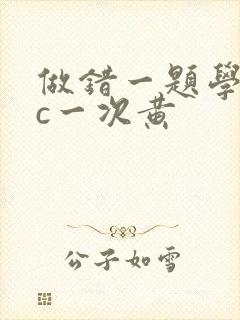 做錯一題學
c一次黃
公子如雪